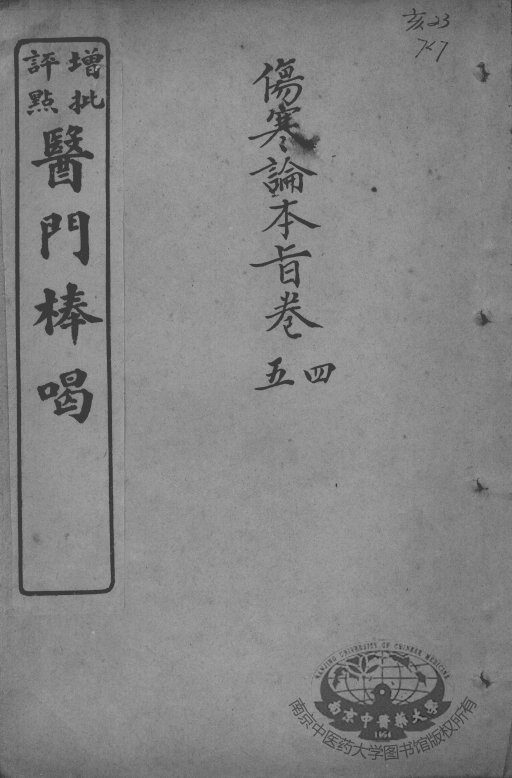 增批
評點
醫門棒喝
傷寒論本旨卷
四
五
亥23
7<7
NANJING UNIVERSITY OF CHINESE MEDICINE
南京中醫藥大學
1954
南京中医药大学图书馆版权所有